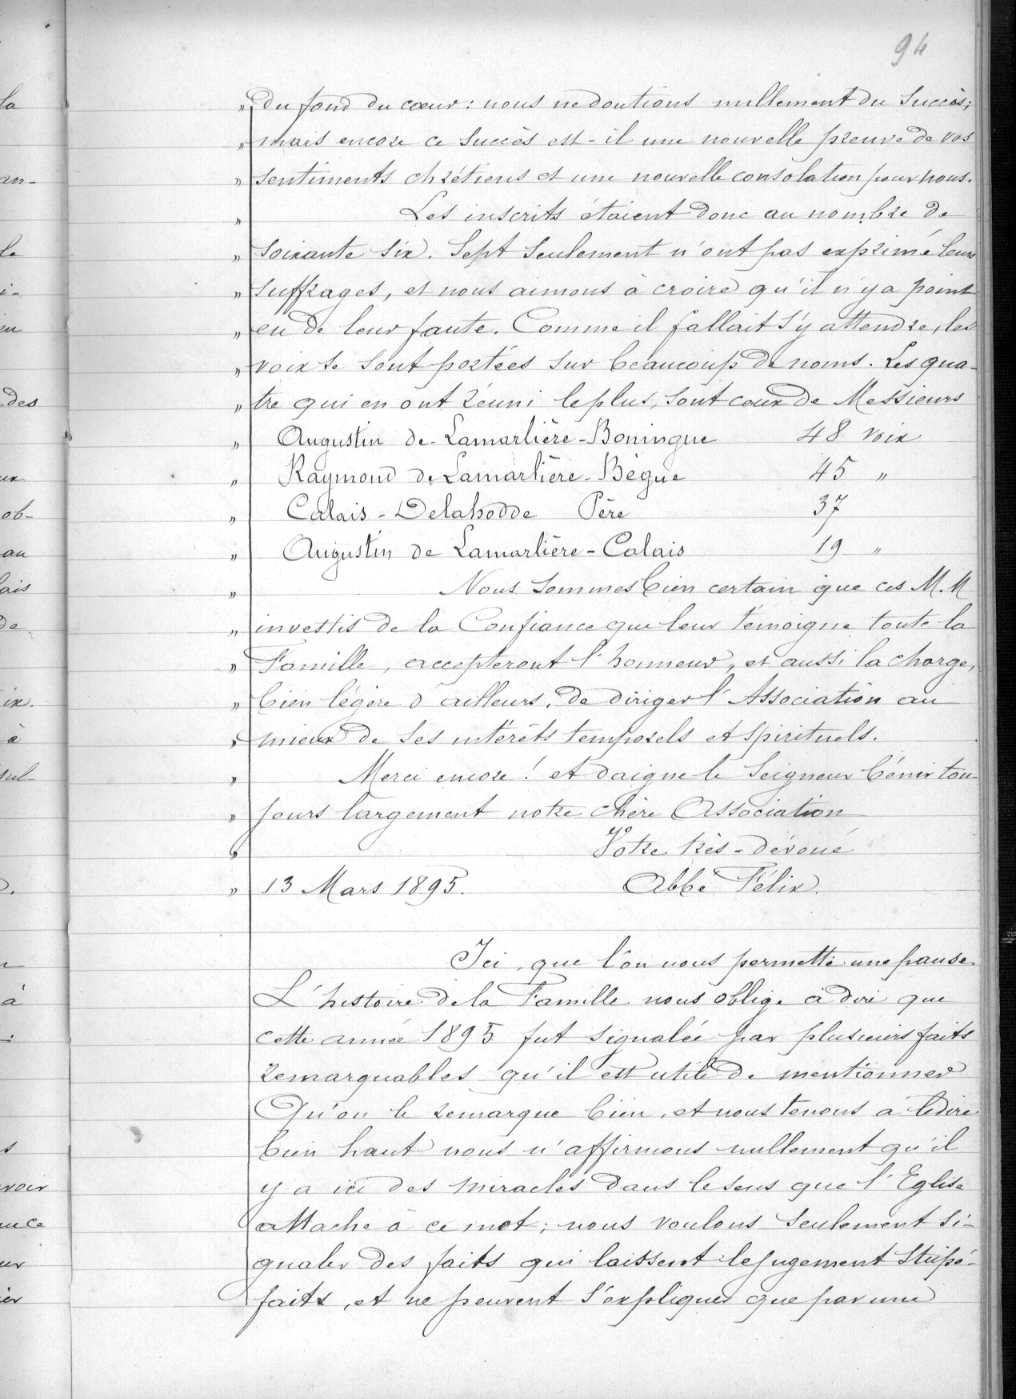 94
" du fond du cœur : nous ne doutions nullement du succès ;
" mais encore ce succès est-il une nouvelle preuve de vos
" sentiments chrétiens et une nouvelle consolation pour nous.
" Les inscrits étaient donc au nombre de
" soixante six. Sept seulement n'ont pas exprimé leurs
" suffrages, et nous aimons à croire qu'il n'y a point
" eu de leur faute. Comme il fallait s'y attendre, les
" voix se sont portées sur beaucoup de noms. Les qua-
" tre qui en ont réuni le plus, sont ceux de Messieurs
" Augustin de Lamarlière-Boningue 48 voix
" Raymond de Lamarlière-Bègue 45 "
" Calais-Delahodde Père 37
" Augustin de Lamarlière-Calais 19 "
" Nous sommes bien certain que ces M.M
" investis de la Confiance que leur témoigne toute la
" Famille, accepteront l'honneur, et aussi la charge,
" bien légère d'ailleurs, de diriger l'Association au
" mieux de ses intérêts temporels et spirituels.
" Merci encore ! et daigne le Seigneur bénir tou-
" jours largement notre chère Association
" Votre très-dévoué
" 13 Mars 1895. Abbé Félix.
Ici, que l'on nous permette une pause.
L'histoire de la Famille nous oblige à dire que
cette année 1895 fut signalée par plusieurs faits
remarquables qu'il est utile de mentionner
Qu'on le remarque bien, et nous tenons à le dire
bien haut nous n'affirmons nullement qu'il
y a ici des miracles dans le sens que l'Eglise
attache à ce mot ; nous voulons seulement si-
gnaler des faits qui laissent le jugement stupé-
faits, et ne peuvent s'expliquer que par une